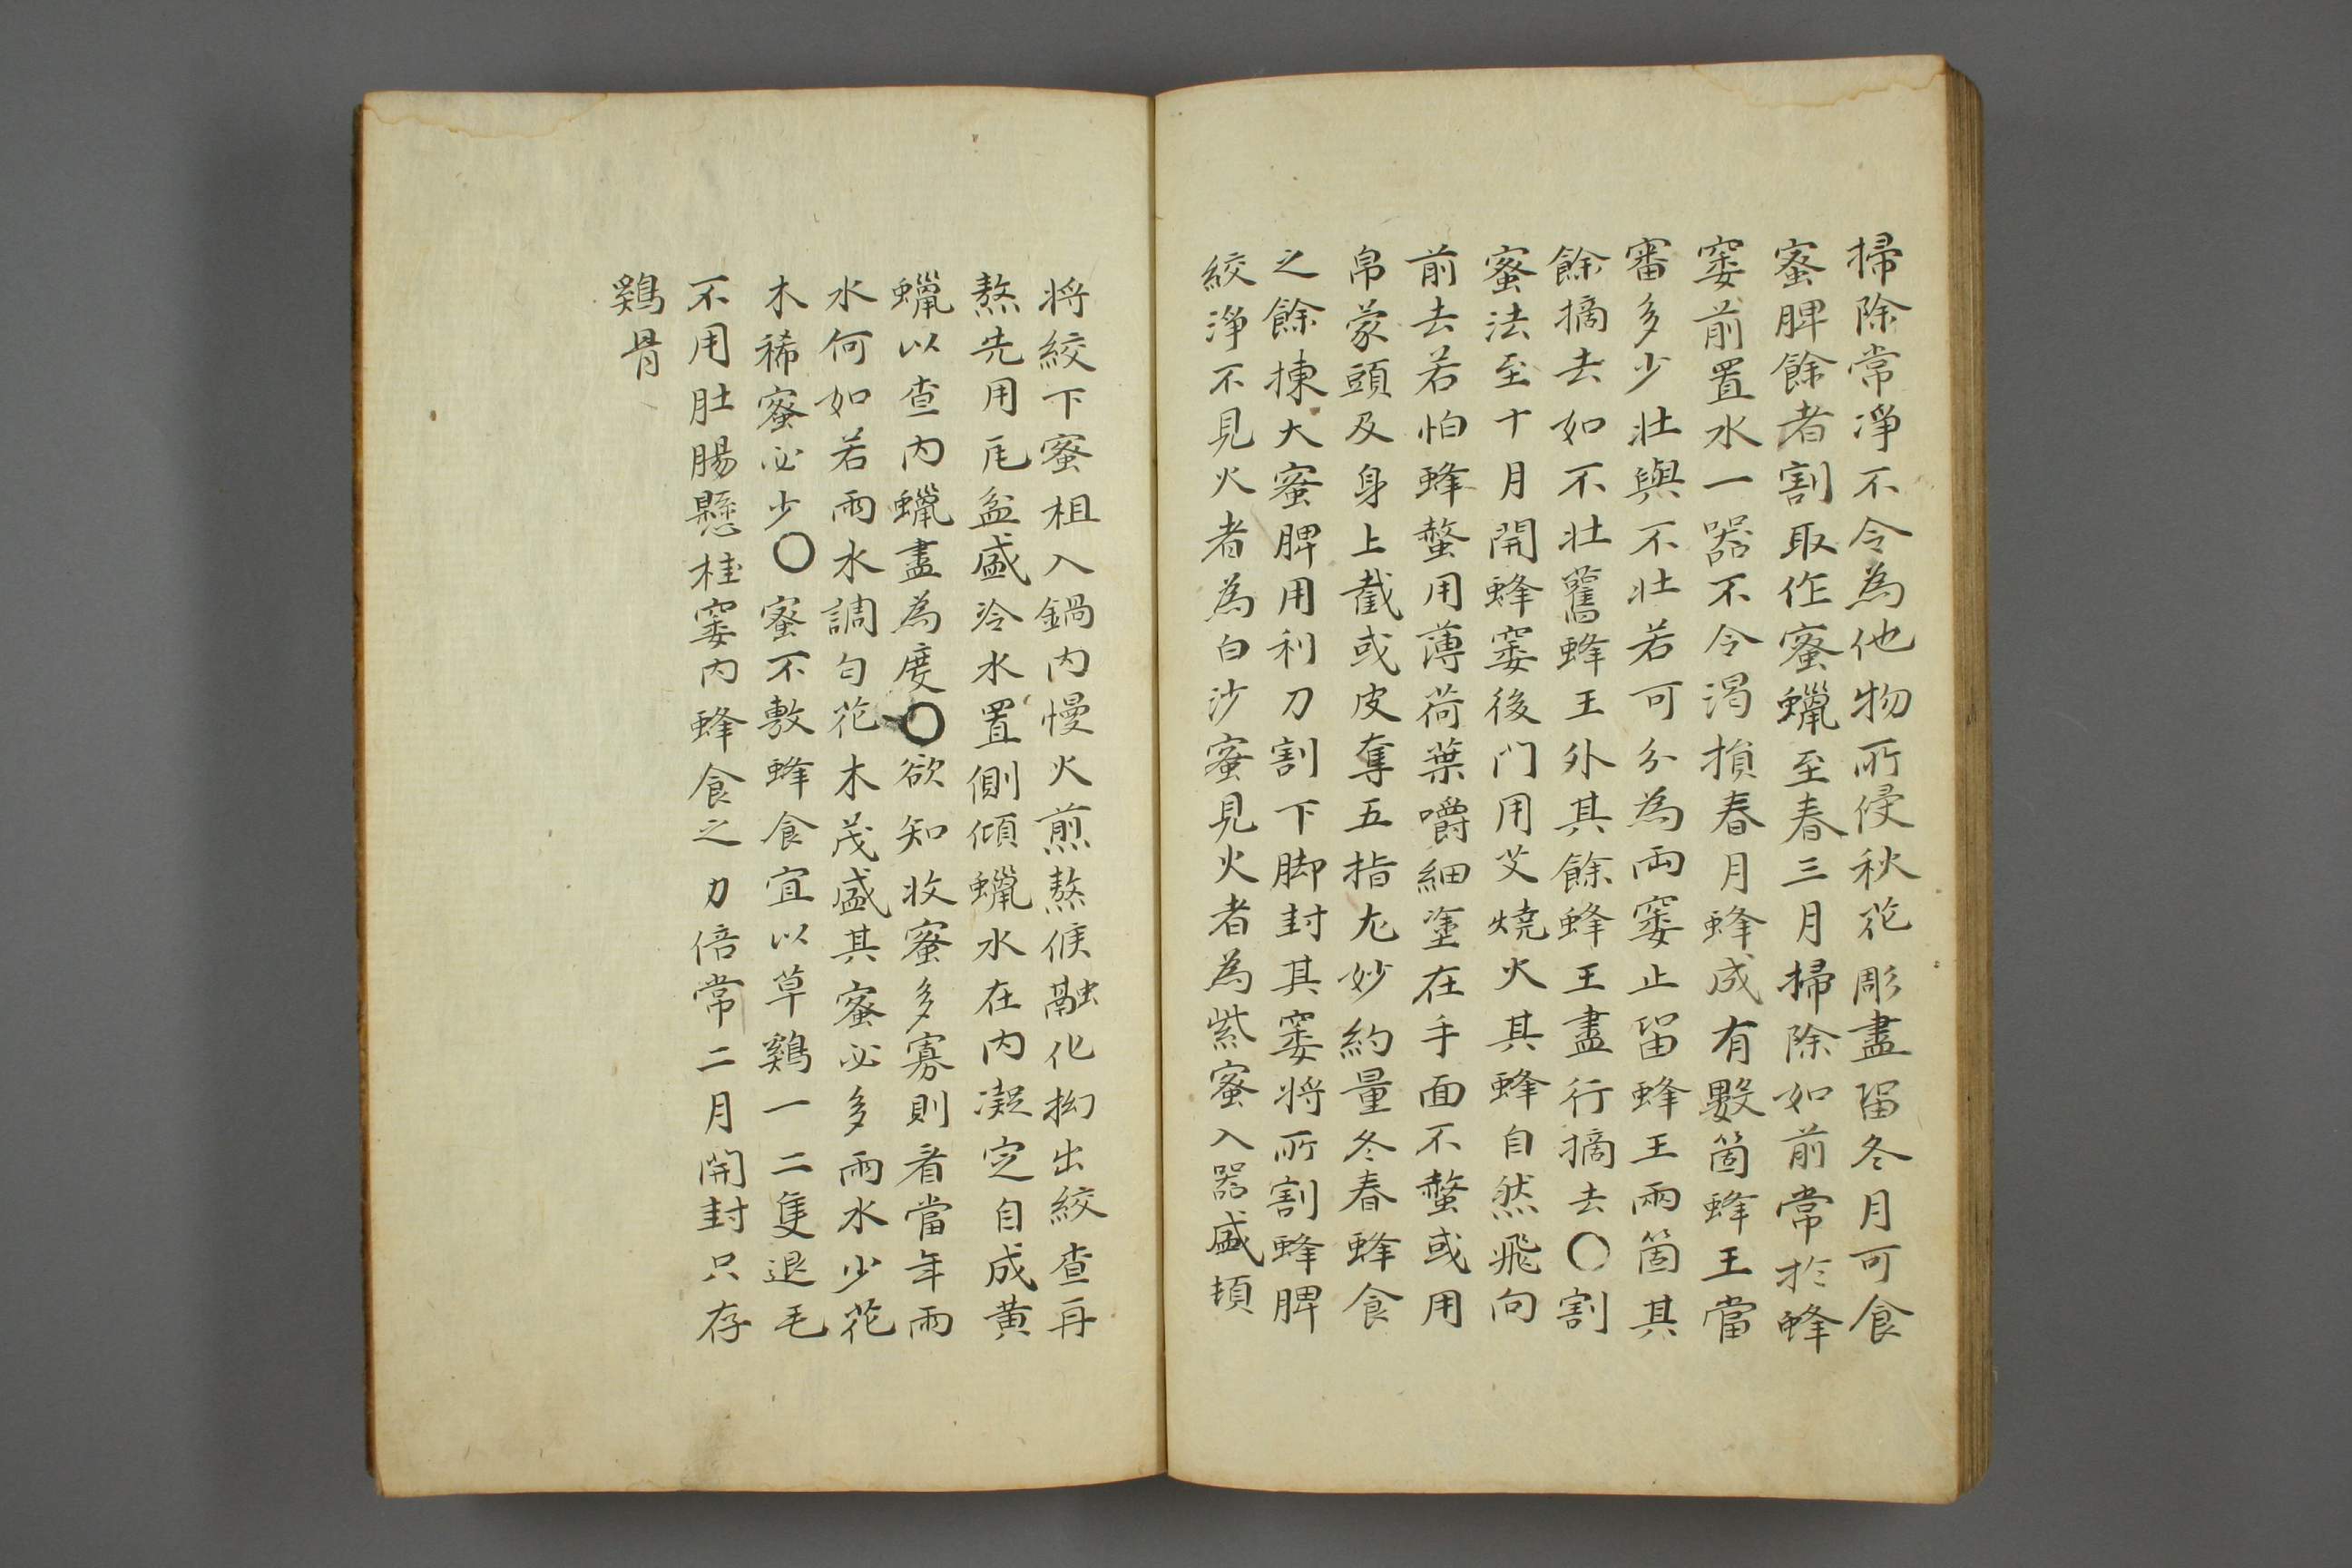 掃除常淨不令為他物所侵秋花彫盡留冬月可食
蜜脾餘者割取作蜜蠟至春三月掃除如前常於蜂
窠前置水一器不令渴損春月蜂成有數箇蜂王當
審多少壯與不壯若可分為兩窠止留蜂王兩箇其
餘摘去如不壯舊蜂王外其餘蜂王盡行摘去〇割
蜜法至十月開蜂窠後门用艾燒火其蜂自然飛向
前去若怕蜂螫用薄荷葉嚼細塗在手面不螫或用
帛蒙頭及身上截或皮奪五指尤妙約量冬春蜂食
之餘揀大蜜脾用利刀割下脚封其窠将所割蜂脾
絞淨不見火者為白沙蜜見火者為紫蜜入器盛頓
将絞下蜜柤入鍋内慢火煎熬候融化拗出絞查再
熬先用瓦盆盛冷水置側傾蠟水在内凝定自成黄
蠟以查内蠟盡為度〇欲知收蜜多寡則看當年雨
水何如若雨水調匀花木茂盛其蜜必多雨水少花
木稀蜜必少〇蜜不敷蜂食宜以草鷄一二隻退毛
不用肚腸懸桂窠内蜂食之力倍常二月開封只存
鷄骨